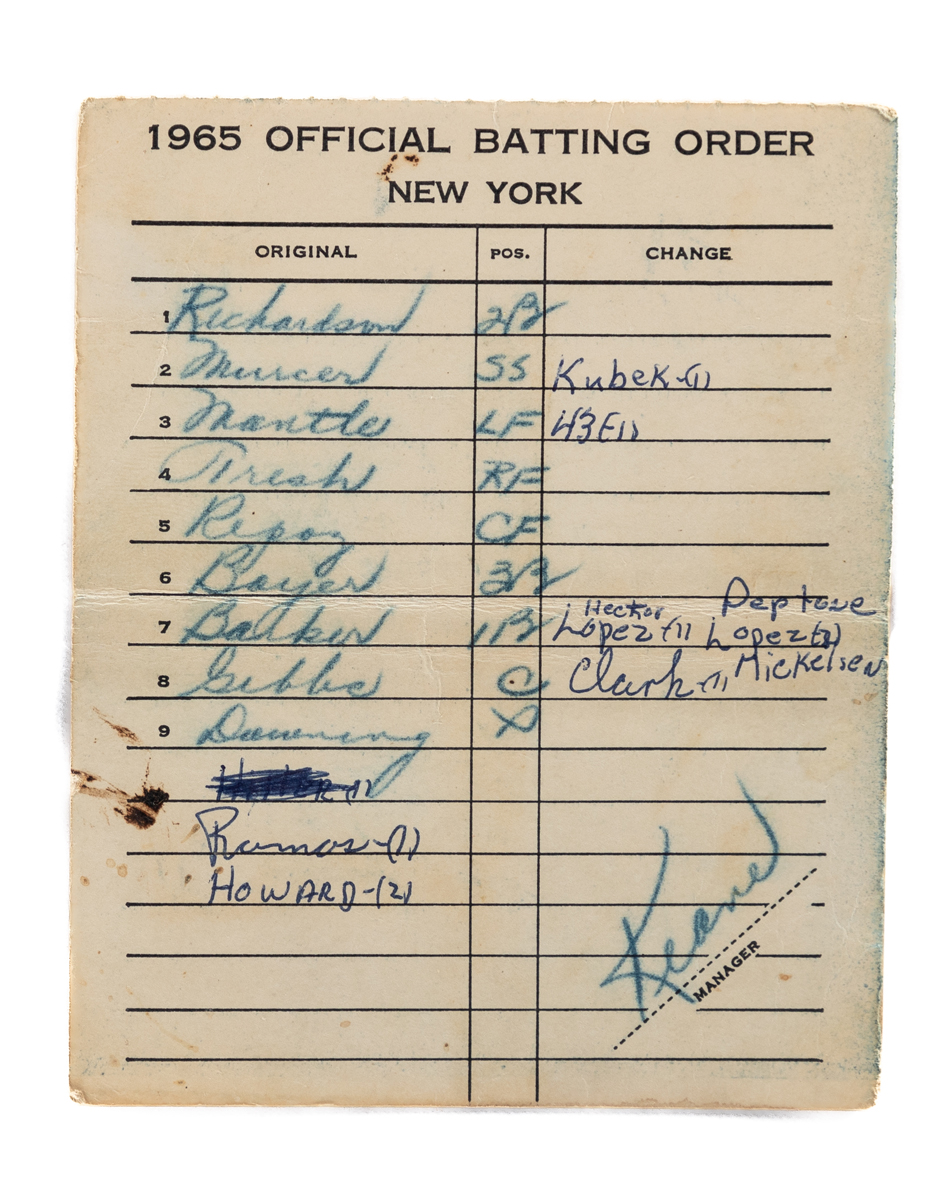 1965 OFFICIAL BATTING ORDER
NEW YORK
ORIGINAL POS. CHANGE
1 Richardson 2B
2 Murcer SS Kubek-(1)
3 Mantle LF
4 Tresh RF
5 Repoz CF
6 Boyer 3B
Hector Pepitone
7 Barker 1B Lopez (1) Lopez
8 Gibbs C Clark-(1) Mickelsen
9 Downing P
Ramos-(1)
HOWARD-(2)
Keane
MANAGER